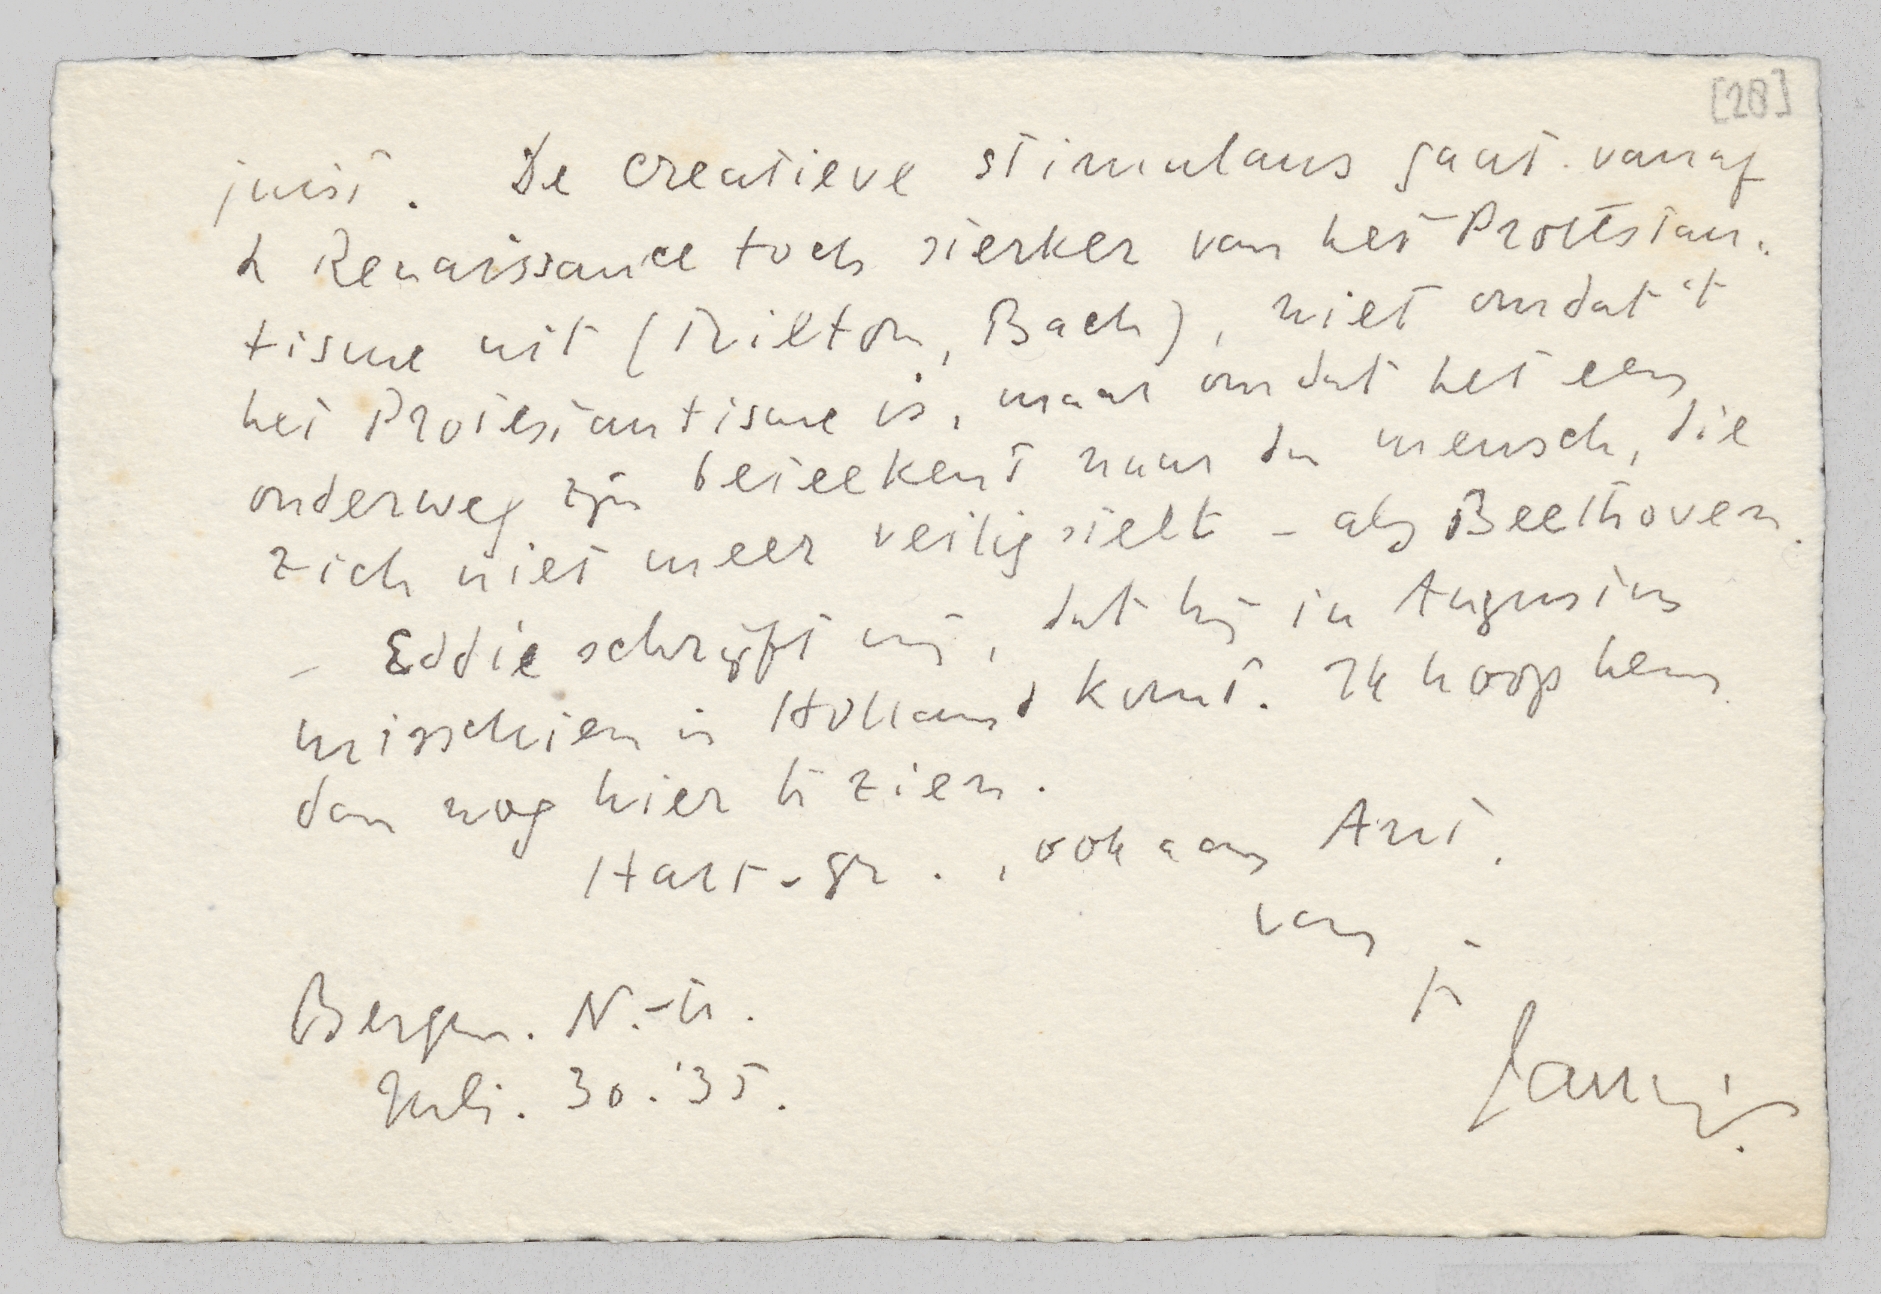 [28]
juist. De creatieve stimulans gaat vanaf
de Renaissance toch sterker van het Protestan-
tisme uit (Milton, Bach), niet omdat 't
het Protestantisme is, maar omdat het een
onderweg zijn beteekent naar den mensch, die
zich niet meer veilig stelt – als Beethoven.
– Eddie schrijft mij, dat hij in Augustus
misschien in Holland komt. Ik hoop hem
dan nog hier te zien.
Hart-gr., ook aan Ant.
van
je
Jany.
Bergen. N.-H.
Juli. 30. '35.